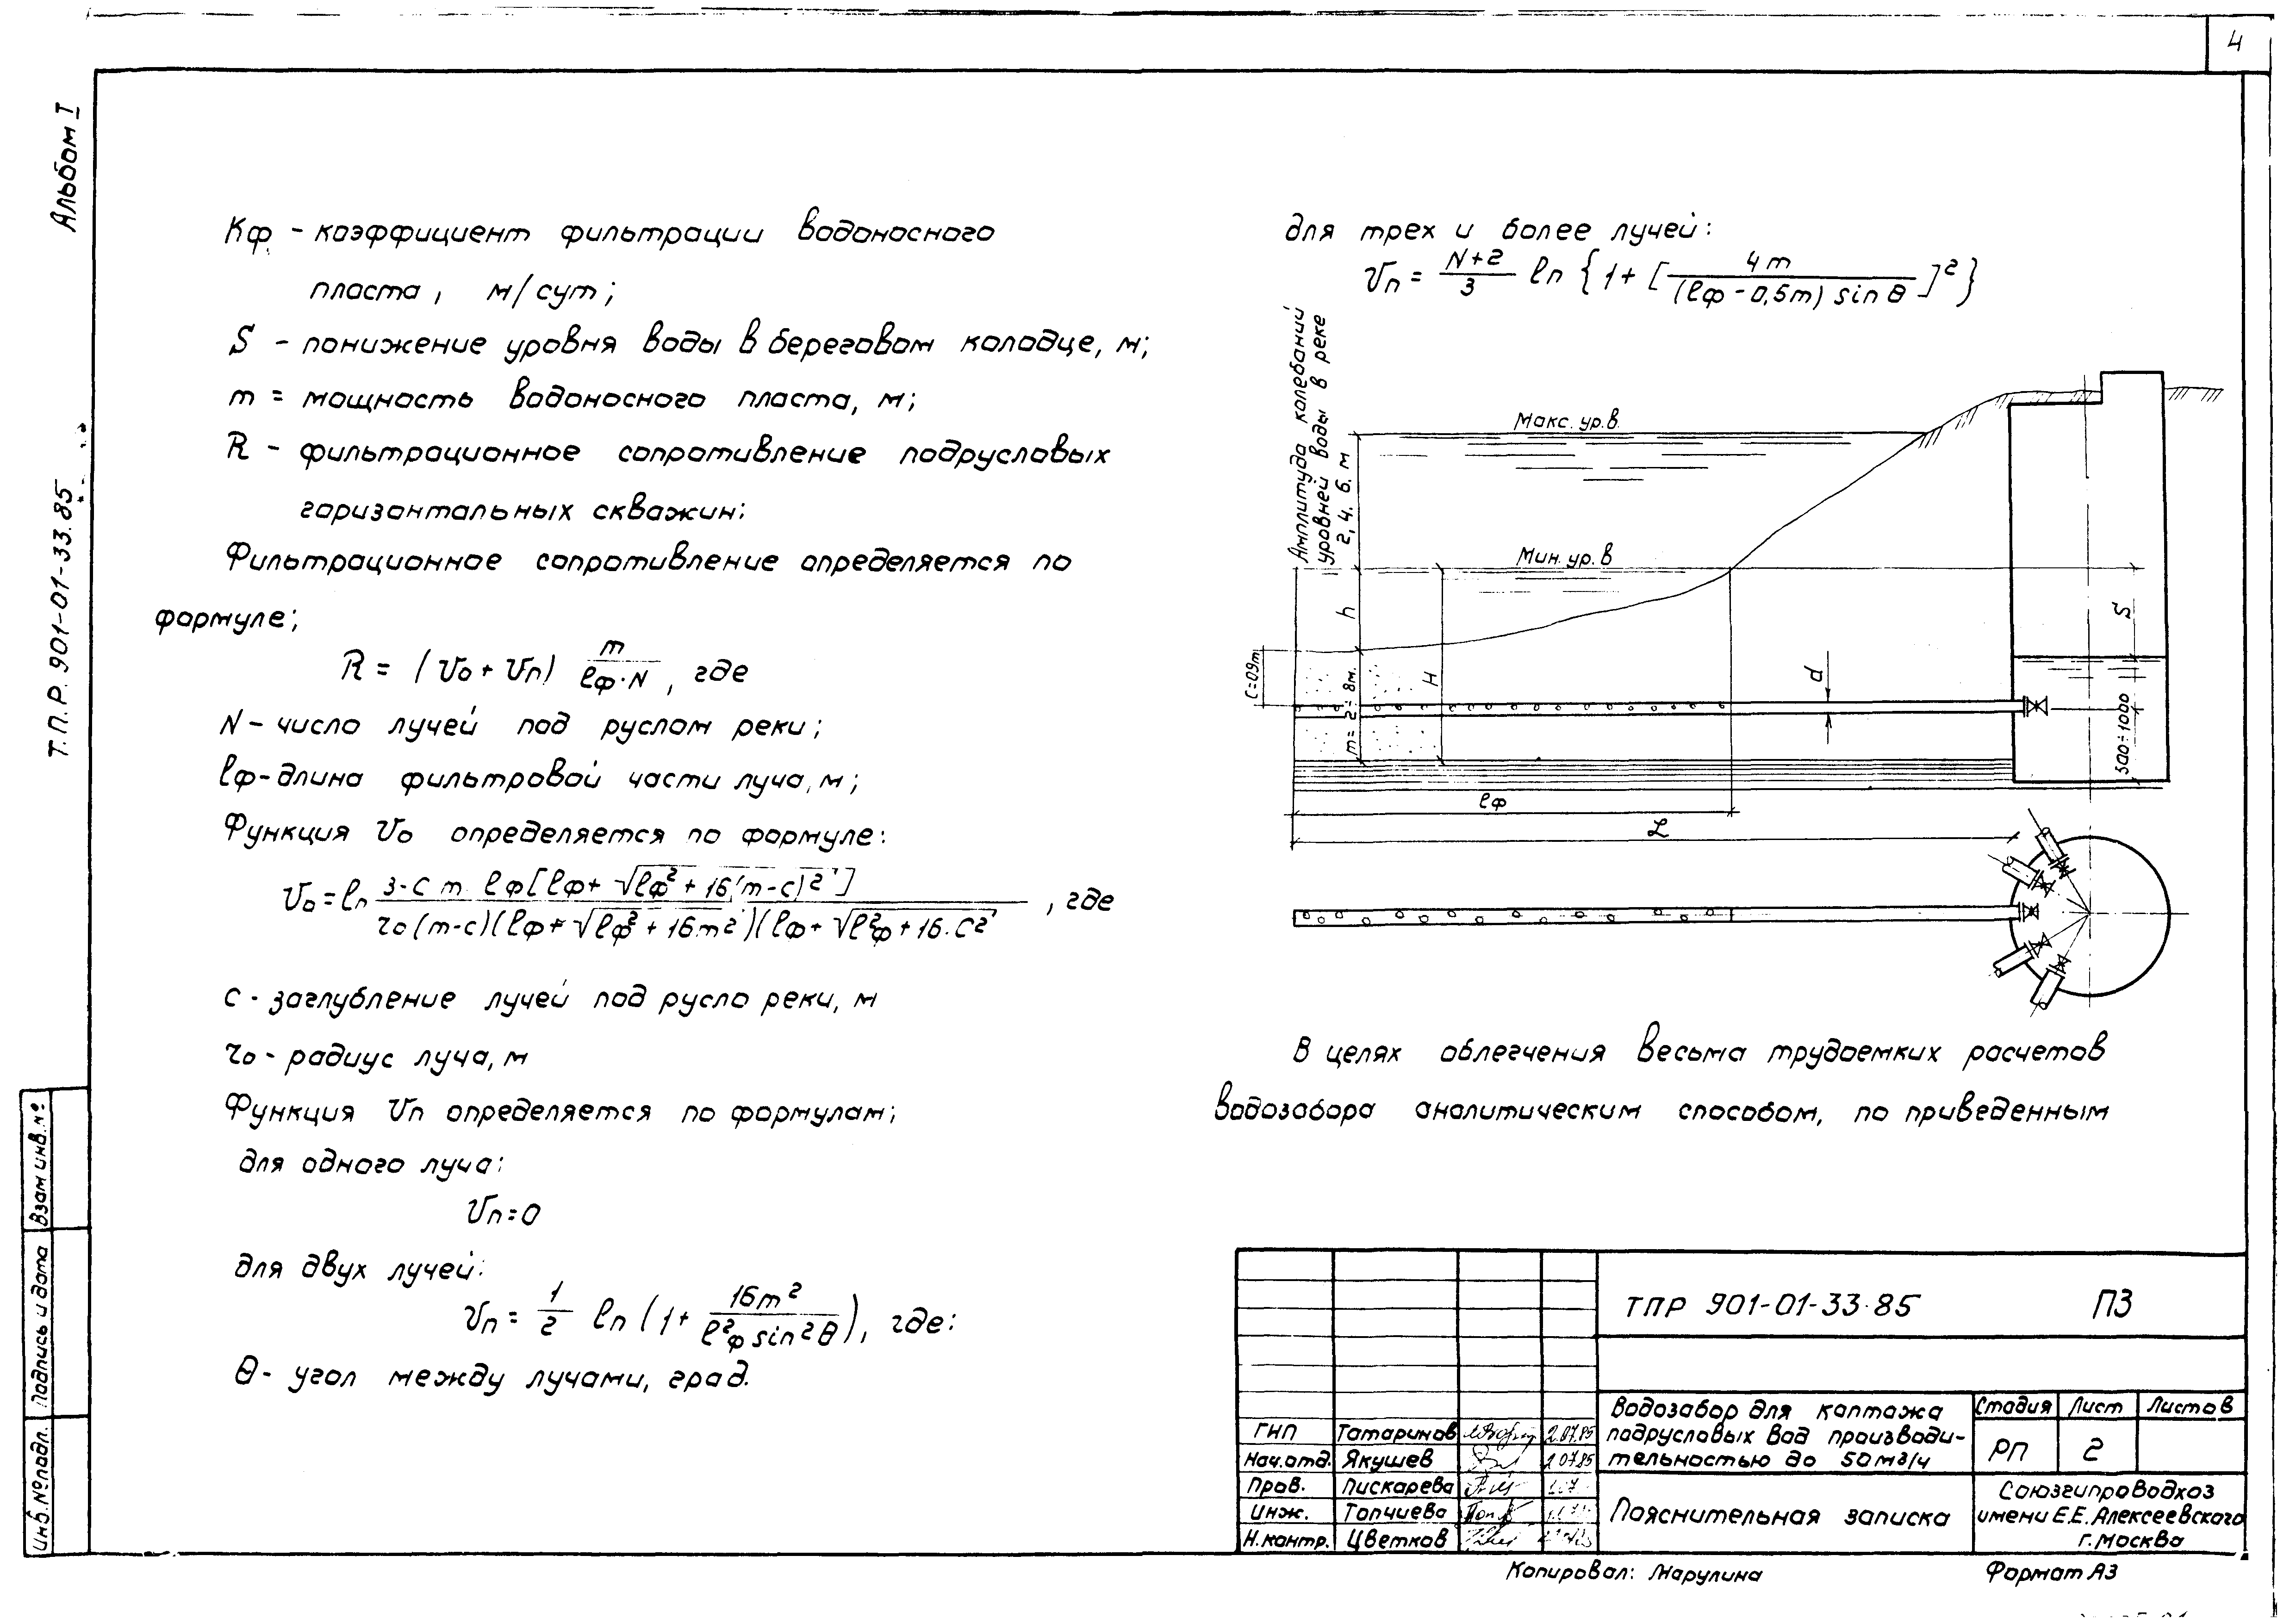 4
Альбом I
Т.П.Р. 901-01-33.85
Кф - коэффициент фильтрации водоносного
пласта, м/сут;
S - понижение уровня воды в береговом колодце, м;
m = мощность водоносного пласта, м;
R - фильтрационное сопротивление подрусловых
горизонтальных скважин:
Фильтрационное сопротивление определяется по
формуле;
R = (Vo + Vп) m / lф·N , где
N - число лучей под руслом реки;
lф - длина фильтровой части луча, м;
Функция Vo определяется по формуле:
Vo = ln 3·C m lф[lф + √lф² + 16(m-c)²] / ro(m-c)(lф + √lф² + 16m²)(lф + √l²ф + 16·C² , где
С - заглубление лучей под русло реки, м
ro - радиус луча, м
Функция Vп определяется по формулам;
для одного луча:
Vп = 0
для двух лучей:
Vп = 1/2 ln (1 + 16m² / l²ф sin²θ), где:
θ - угол между лучами, град.
для трех и более лучей:
Vп = N+2 / 3 ln {1 + [4m / (lф - 0,5m) sin θ]²}
Амплитуда колебаний
уровней воды в реке
2, 4. 6. м
Макс. ур.в.
Мин. ур. в
h
H
S
d
С=0.9m
m = 2 ÷ 8м.
500÷1000
lф
L
В целях облегчения весьма трудоемких расчетов
водозабора аналитическим способом, по приведенным
ТПР 901-01-33·85 ПЗ
Водозабор для каптажа
подрусловых вод производи-
тельностью до 50м3/ч
Стадия Лист Листов
РП 2
ГНП Татаринов 2.07.85
Нач.отд. Якушев 2 07.85
Пров. Пискарева
Инж. Топчиева
Н.контр. Цветков
Пояснительная записка
Союзгипроводхоз
имени Е.Е. Алексеевского
г. Москва
Взам инв. №
Подпись и дата
Инв. № подл.
Копировал: Марулина
Формат А3